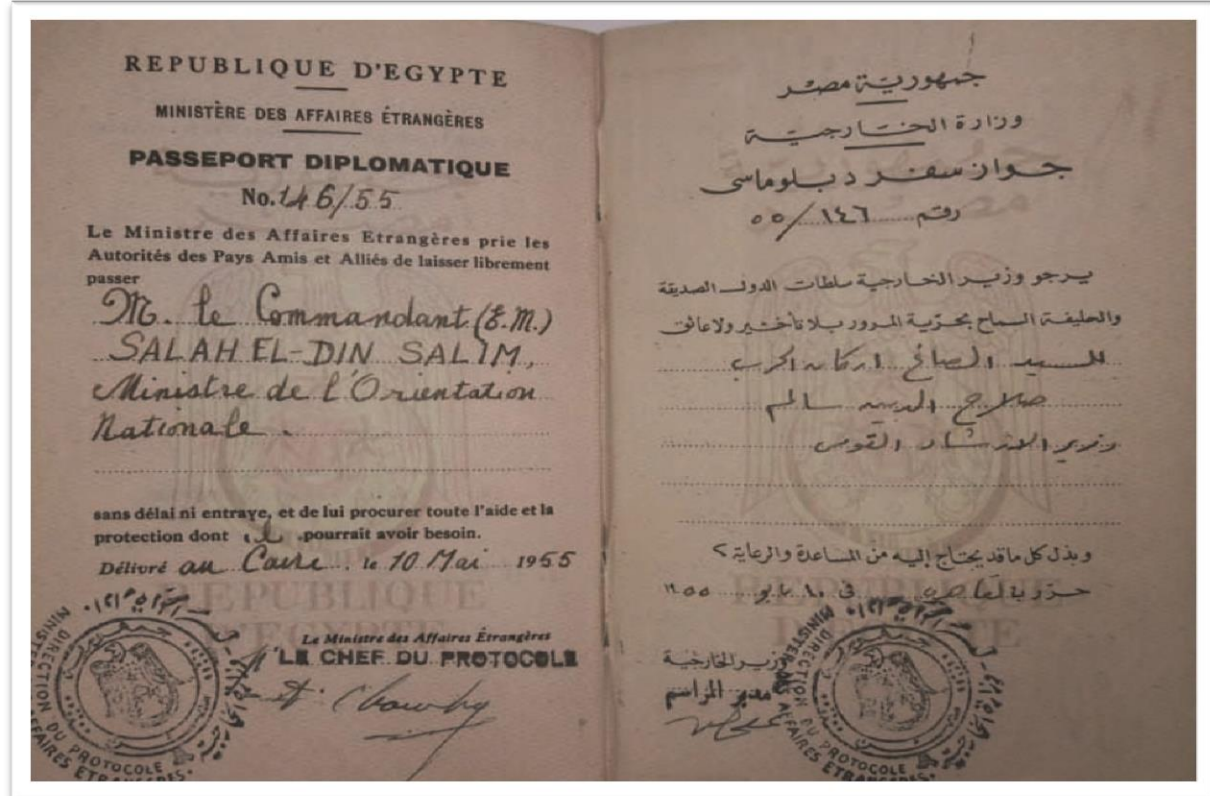 REPUBLIQUE D'EGYPTE
MINISTÈRE DES AFFAIRES ÉTRANGÈRES
PASSEPORT DIPLOMATIQUE
No. 146/55
Le Ministre des Affaires Etrangères prie les
Autorités des Pays Amis et Alliés de laisser librement
passer
M. le Commandant (E.M.)
SALAH EL-DIN SALIM,
Ministre de l'Orientation
Nationale.
sans délai ni entrave, et de lui procurer toute l'aide et la
protection dont il pourrait avoir besoin.
Délivré au Caire. le 10 Mai 1955
REPUBLIQUE
D'EGYPTE
Le Ministre des Affaires Étrangères
LE CHEF DU PROTOCOLE
MINISTERE DES AFFAIRES ETRANGERES.
DIRECTION DU PROTOCOLE
جمهورية مصر
وزارة الخارجية
جواز سفر دبلوماسى
رقم ١٤٦/٥٥
يرجو وزير الخارجية سلطات الدول الصديقة
والحليفة السماح بحرية المرور بلا تأخير ولا عائق
للسيد الصاغ اركان الحرب
صلاح الدين سالم
وزير الارشاد القومى
وبذل كل ماقد يحتاج إليه من المساعدة والرعاية
حرر بالقاهرة فى ١٠ مايو ١٩٥٥
REPUBLIQUE
D'EGYPTE
وزير الخارجية
مدير المراسم
MINISTERE DES AFFAIRES ETRANGERES.
DIRECTION DU PROTOCOLE